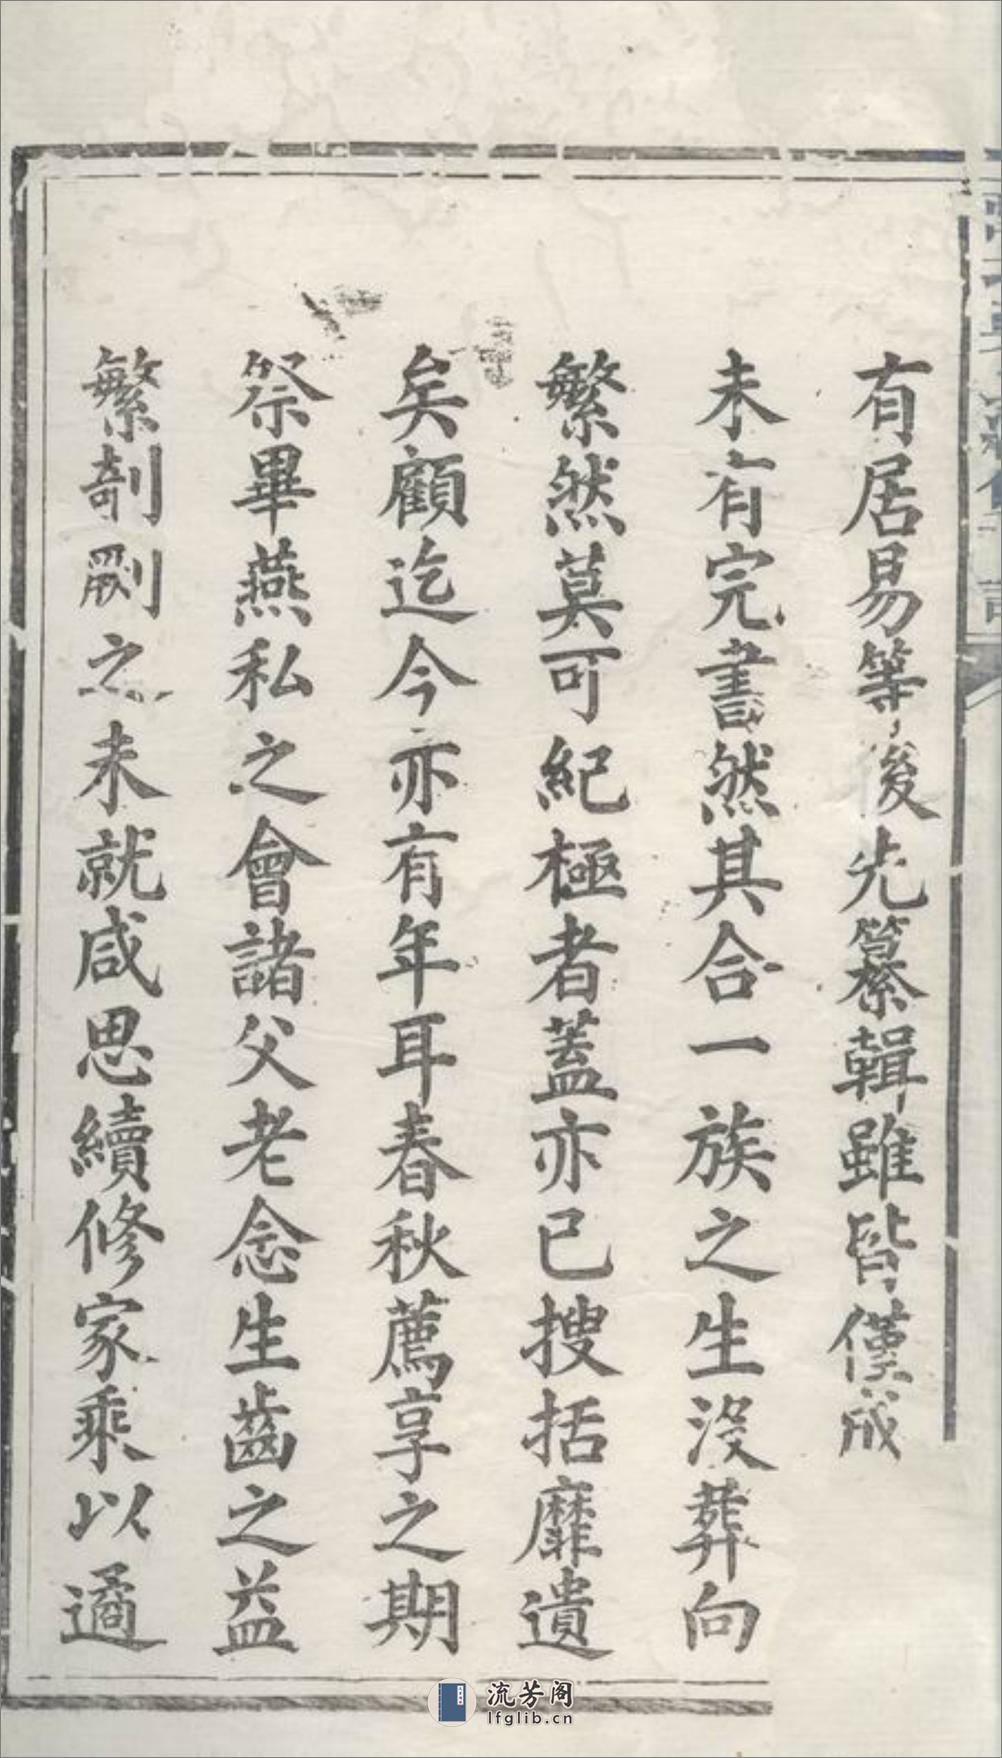 有居易等後先纂輯雖皆僅成
未有完書然其合一族之生沒葬向
繁然莫可紀極者蓋亦已搜括靡遺
矣顧迄今亦有年耳春秋薦享之期
祭畢燕私之會諸父老念生齒之益
繁剞劂之未就咸思續修家乘以遹
流芳阁
lfglib.cn